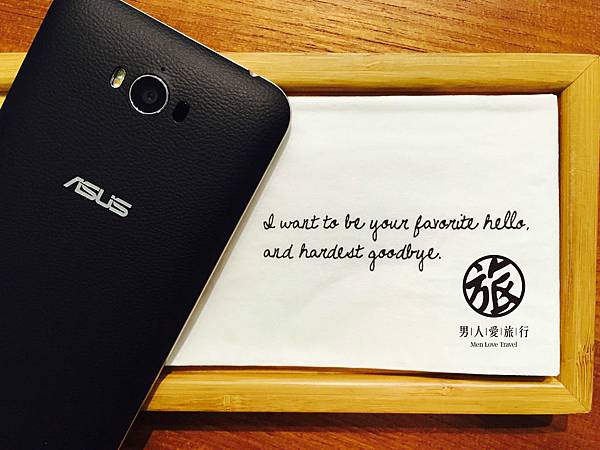 ASUS
I want to be your favorite hello,
and hardest goodbye.
旅
男|人|愛|旅|行
Men Love Travel